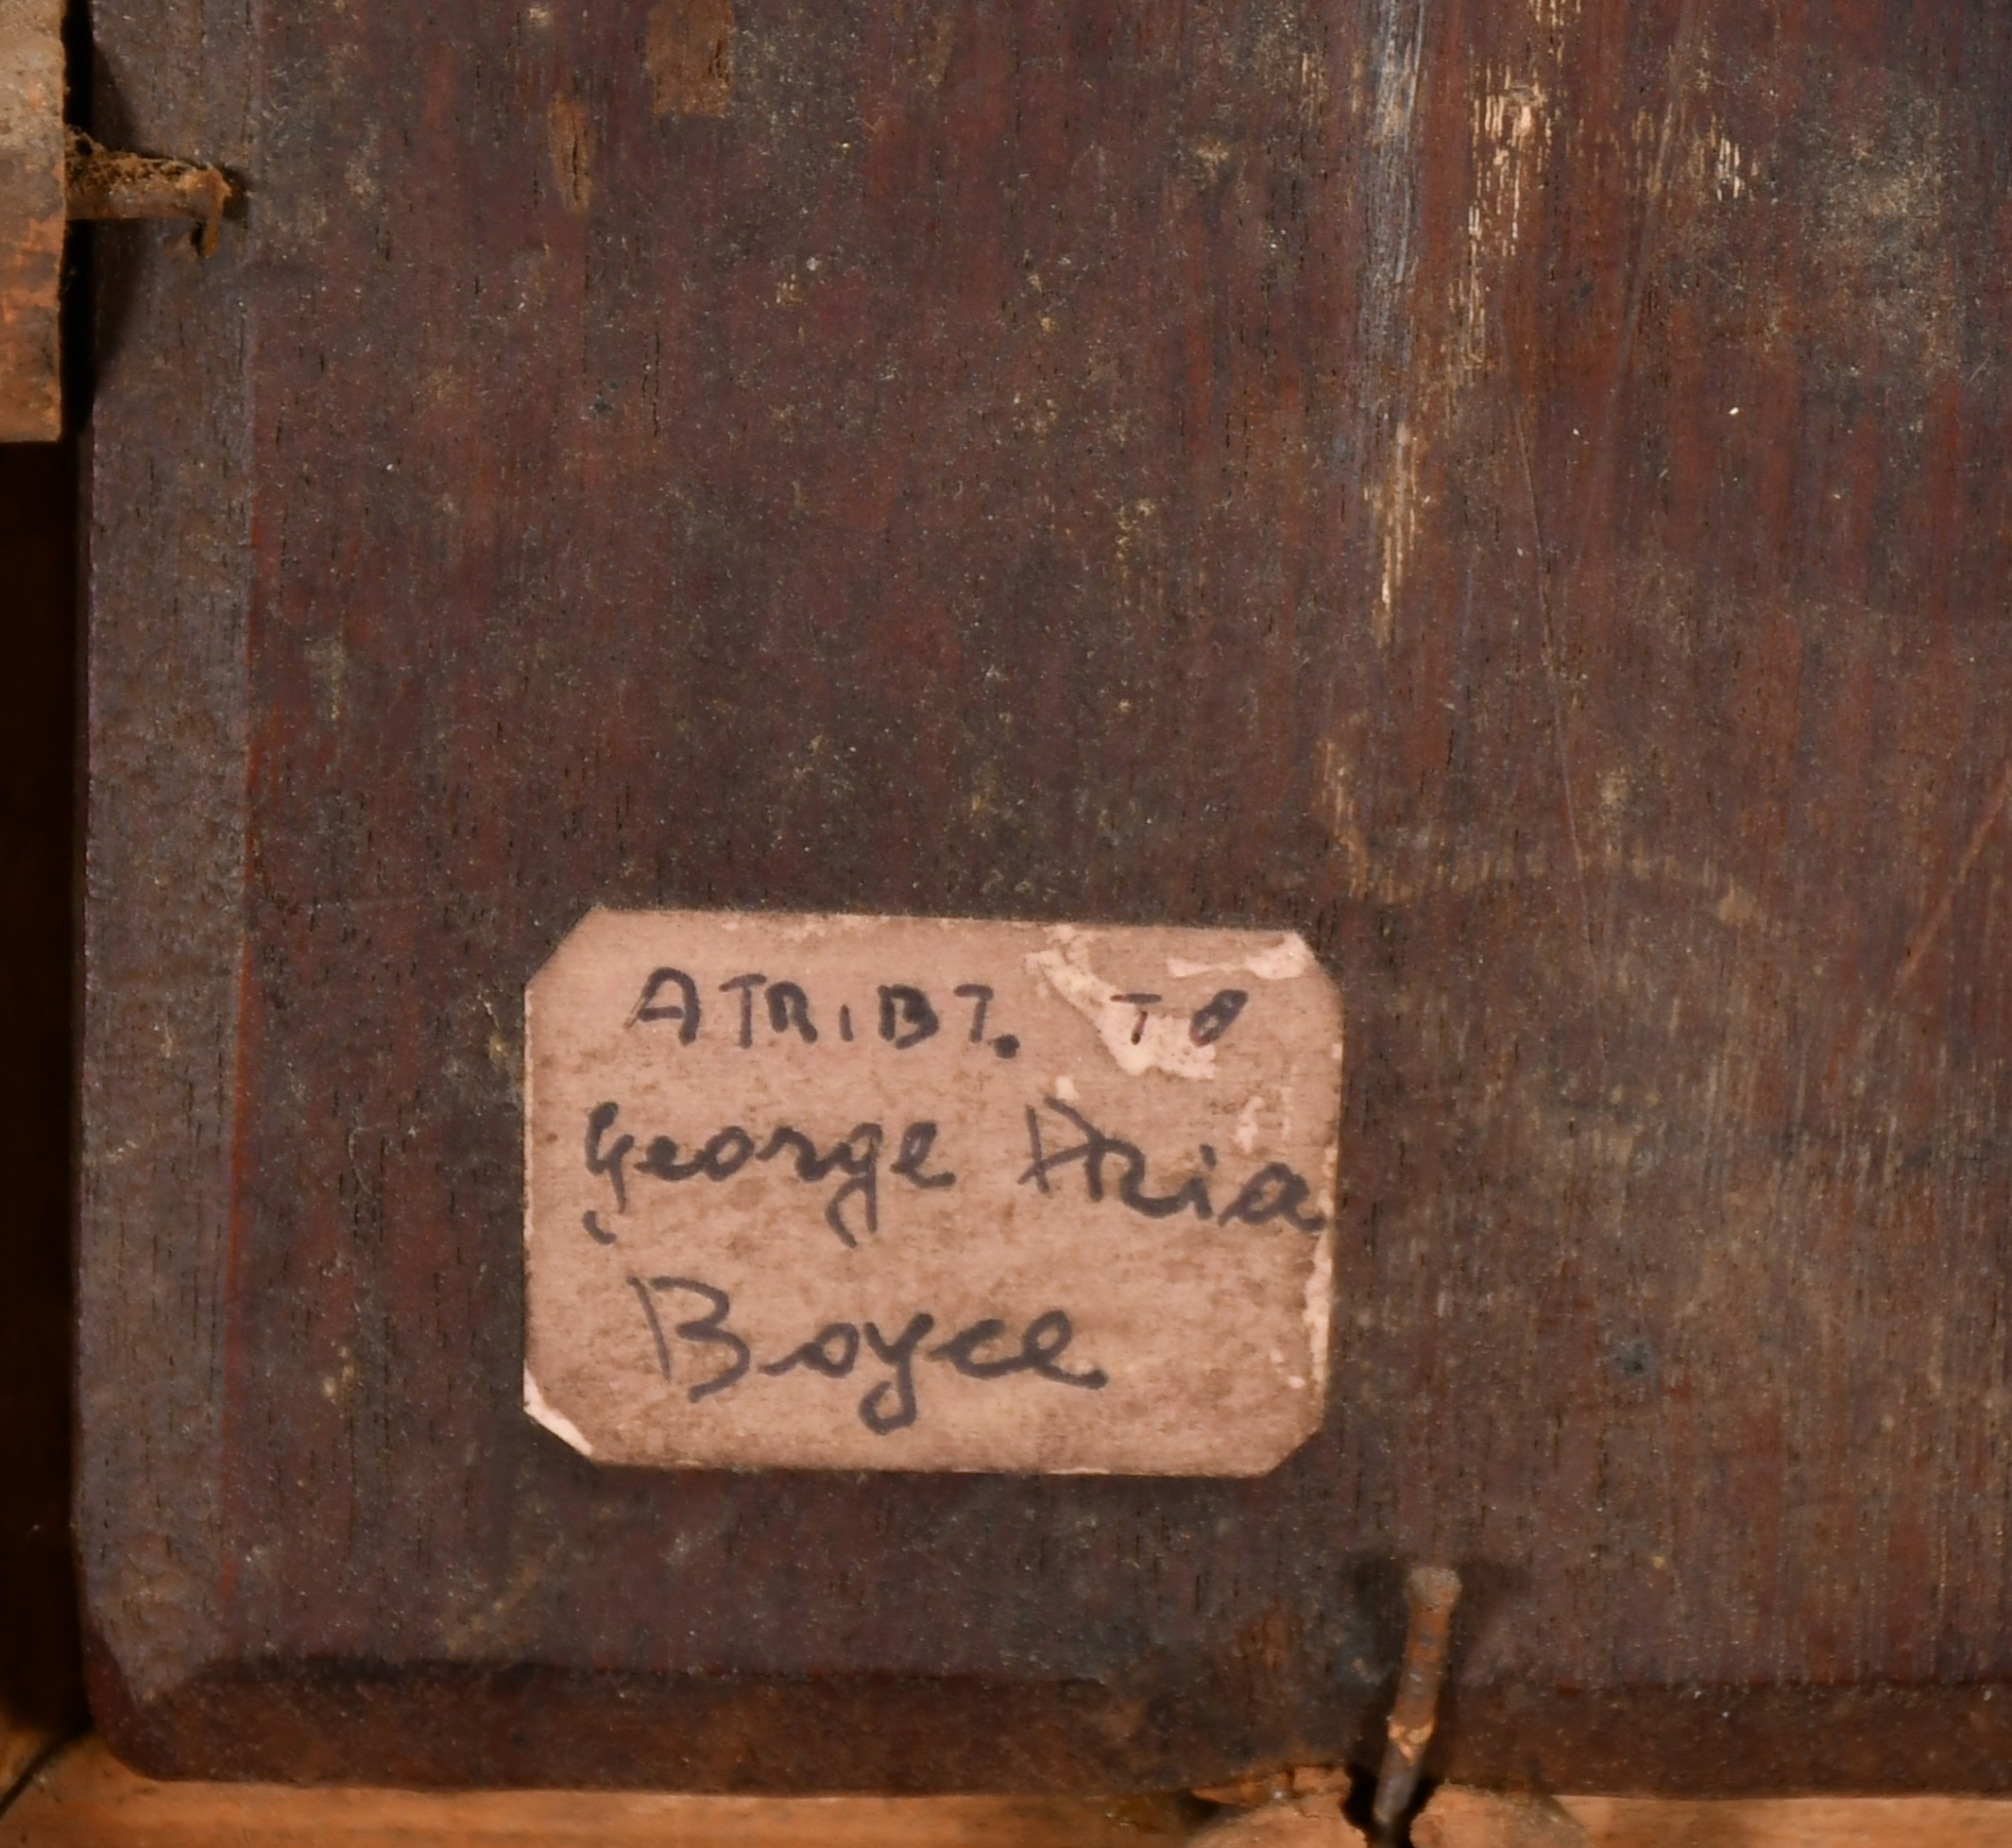 ATRIBT. TO
George Pria
Boyce